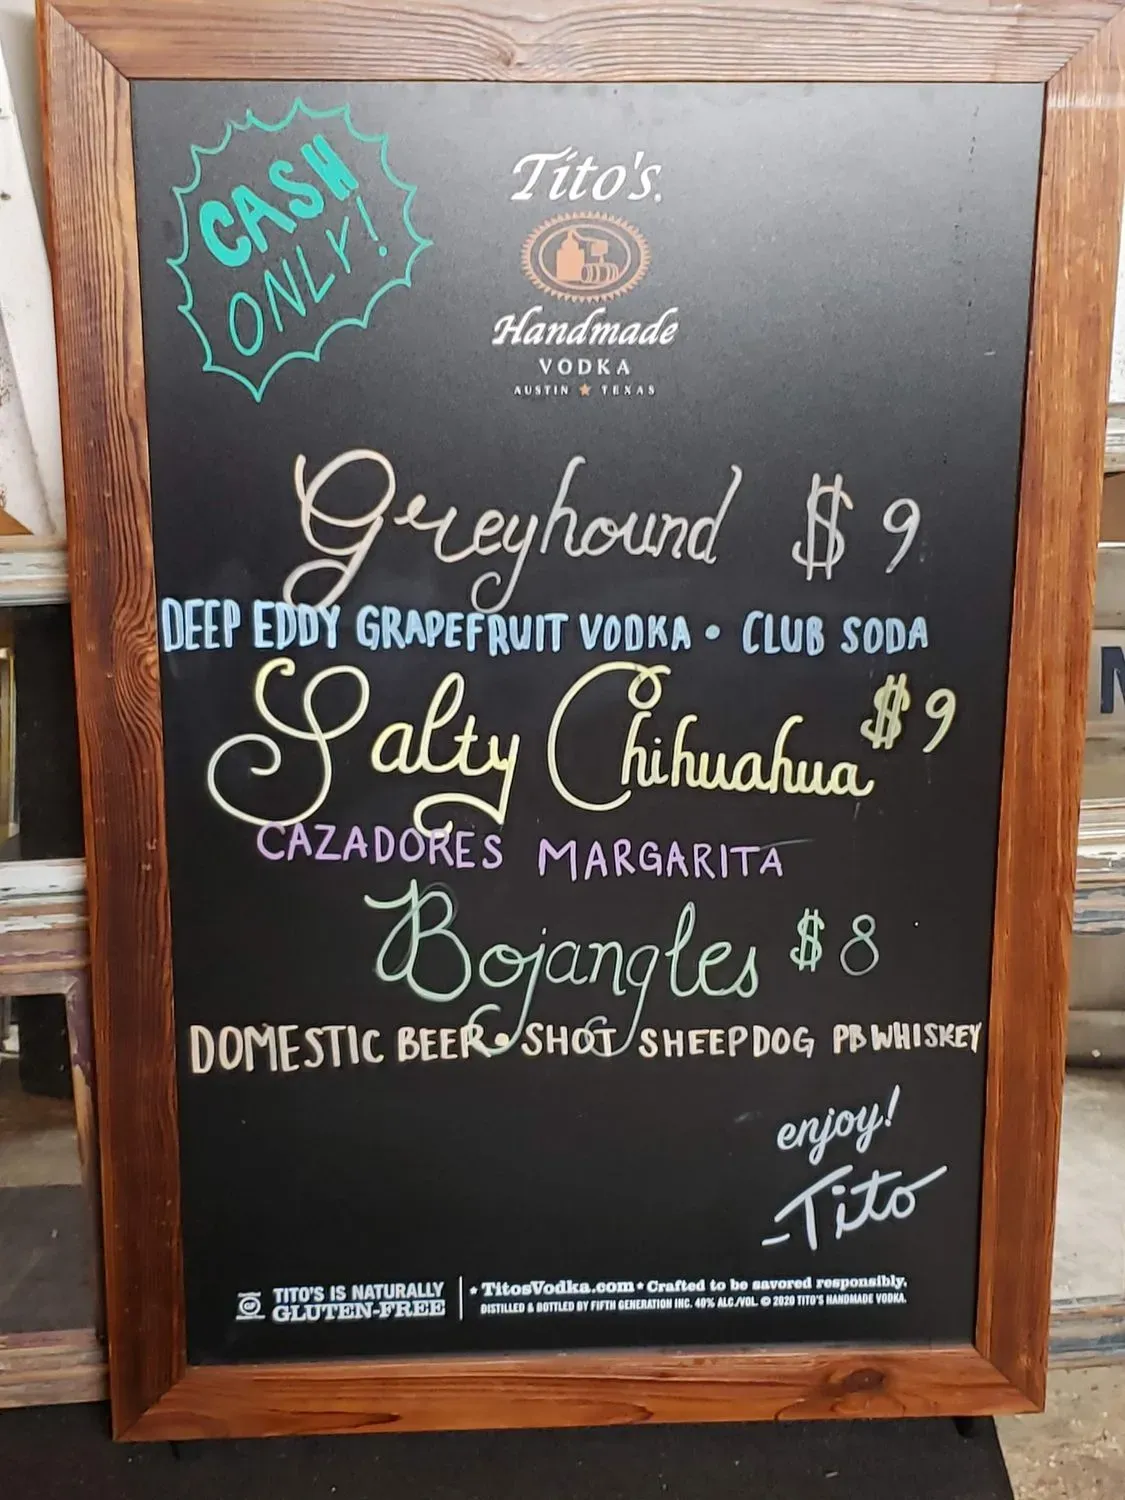 CASH
ONLY!
Tito's.
Handmade
VODKA
AUSTIN ★ TEXAS
Greyhound $9
DEEP EDDY GRAPEFRUIT VODKA • CLUB SODA
Salty Chihuahua $9
CAZADORES MARGARITA
Bojangles $8
DOMESTIC BEER • SHOT SHEEPDOG PB WHISKEY
enjoy!
-Tito
GF
TITO'S IS NATURALLY
GLUTEN-FREE
• TitosVodka.com • Crafted to be savored responsibly.
DISTILLED & BOTTLED BY FIFTH GENERATION INC. 40% ALC./VOL. © 2020 TITO'S HANDMADE VODKA.